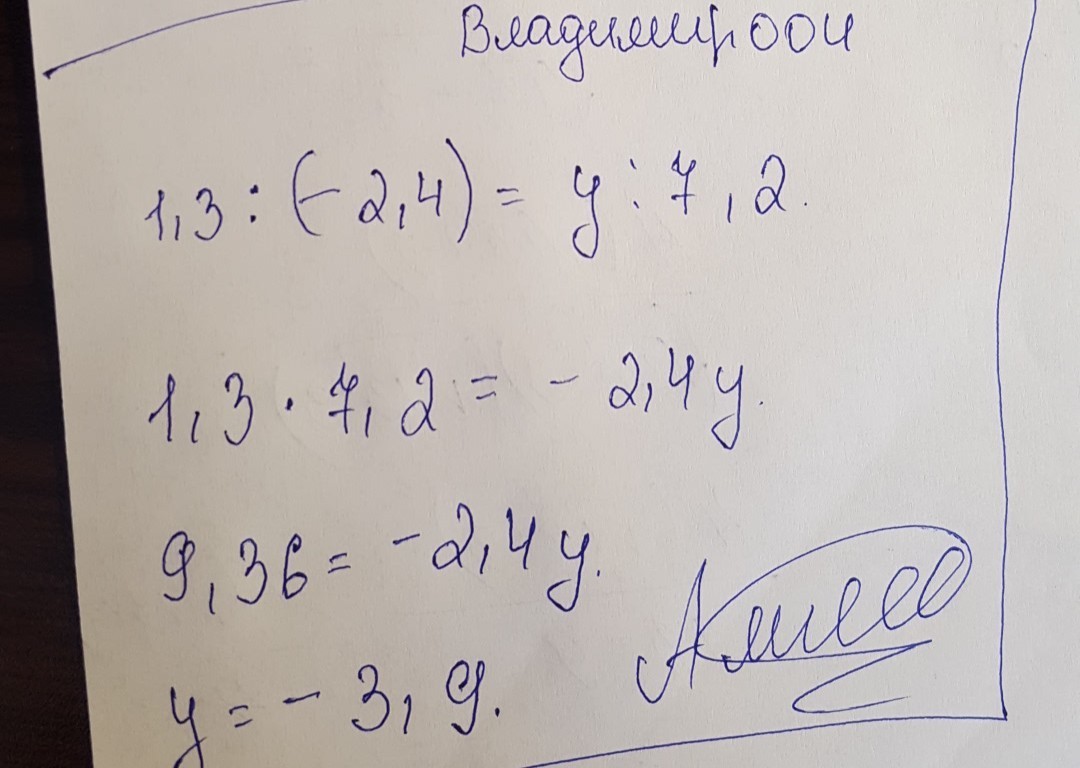 Владимир004
1,3 : (- 2,4) = y : 7,2.
1,3 · 7,2 = - 2,4y.
9,36 = -2,4y.
y = - 3,9.